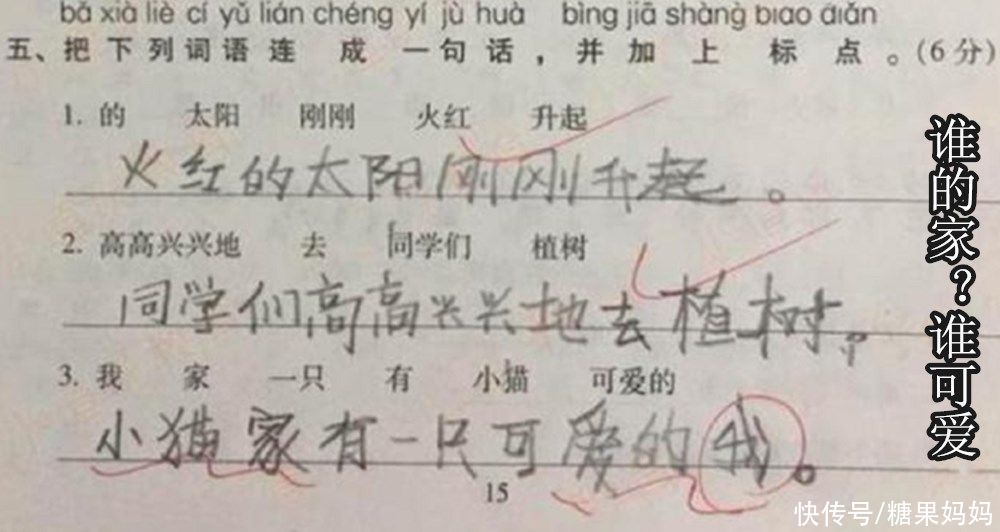 bǎ xià liè cí yǔ lián chéng yí jù huà bìng jiā shàng biāo diǎn
五、把下列词语连成一句话，并加上标点。(6分)
1. 的 太阳 刚刚 火红 升起
火红的太阳刚刚升起。
2. 高高兴兴地 去 同学们 植树
同学们高高兴兴地去植树。
3. 我 家 一只 有 小猫 可爱的
小猫家有一只可爱的我。
15
谁的家？谁可爱
快传号/糖果妈妈